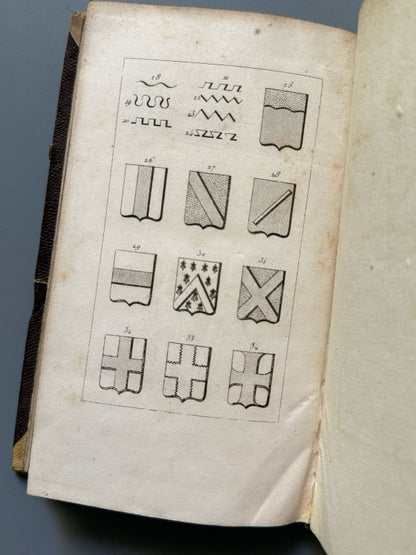 18 21 25
19 22
23
20 24
26 27 28
29 30 31
32 33 34